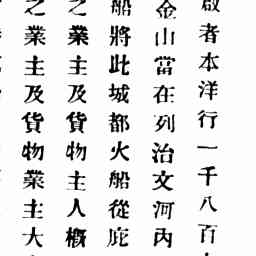 啟者本洋行一千八百
金山當在列治文河丙
船將此城都火船從庇
之業主及貨物主人概
之業主及貨物業主大